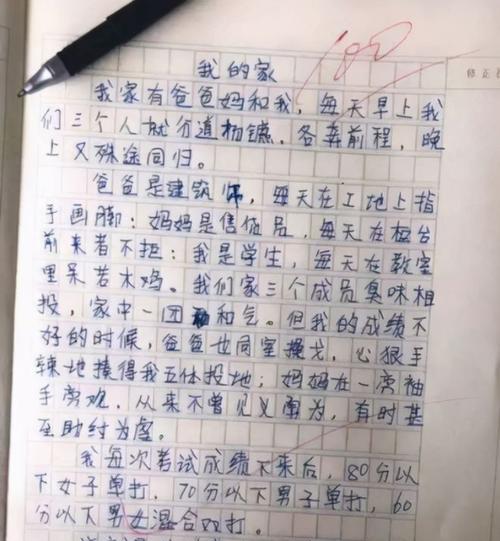 100
修正
我的家
我家有爸爸妈和我，每天早上我
们三个人就分道扬镳，各奔前程，晚
上又殊途同归。
爸爸是建筑师，每天在工地上指
手画脚；妈妈是售货员，每天在柜台
前来者不拒；我是学生，每天在教室
里呆若木鸡。我们家三个成员臭味相
投，家中一团和气。但我的成绩不
好的时候，爸爸也同室操戈，心狠手
辣地揍得我五体投地；妈妈在一旁袖
手旁观，从来不曾见义勇为，有时甚
至助纣为虐。
我每次考试成绩下来后，80分以
下女子单打，70分以下男子单打，60
分以下男女混合双打。